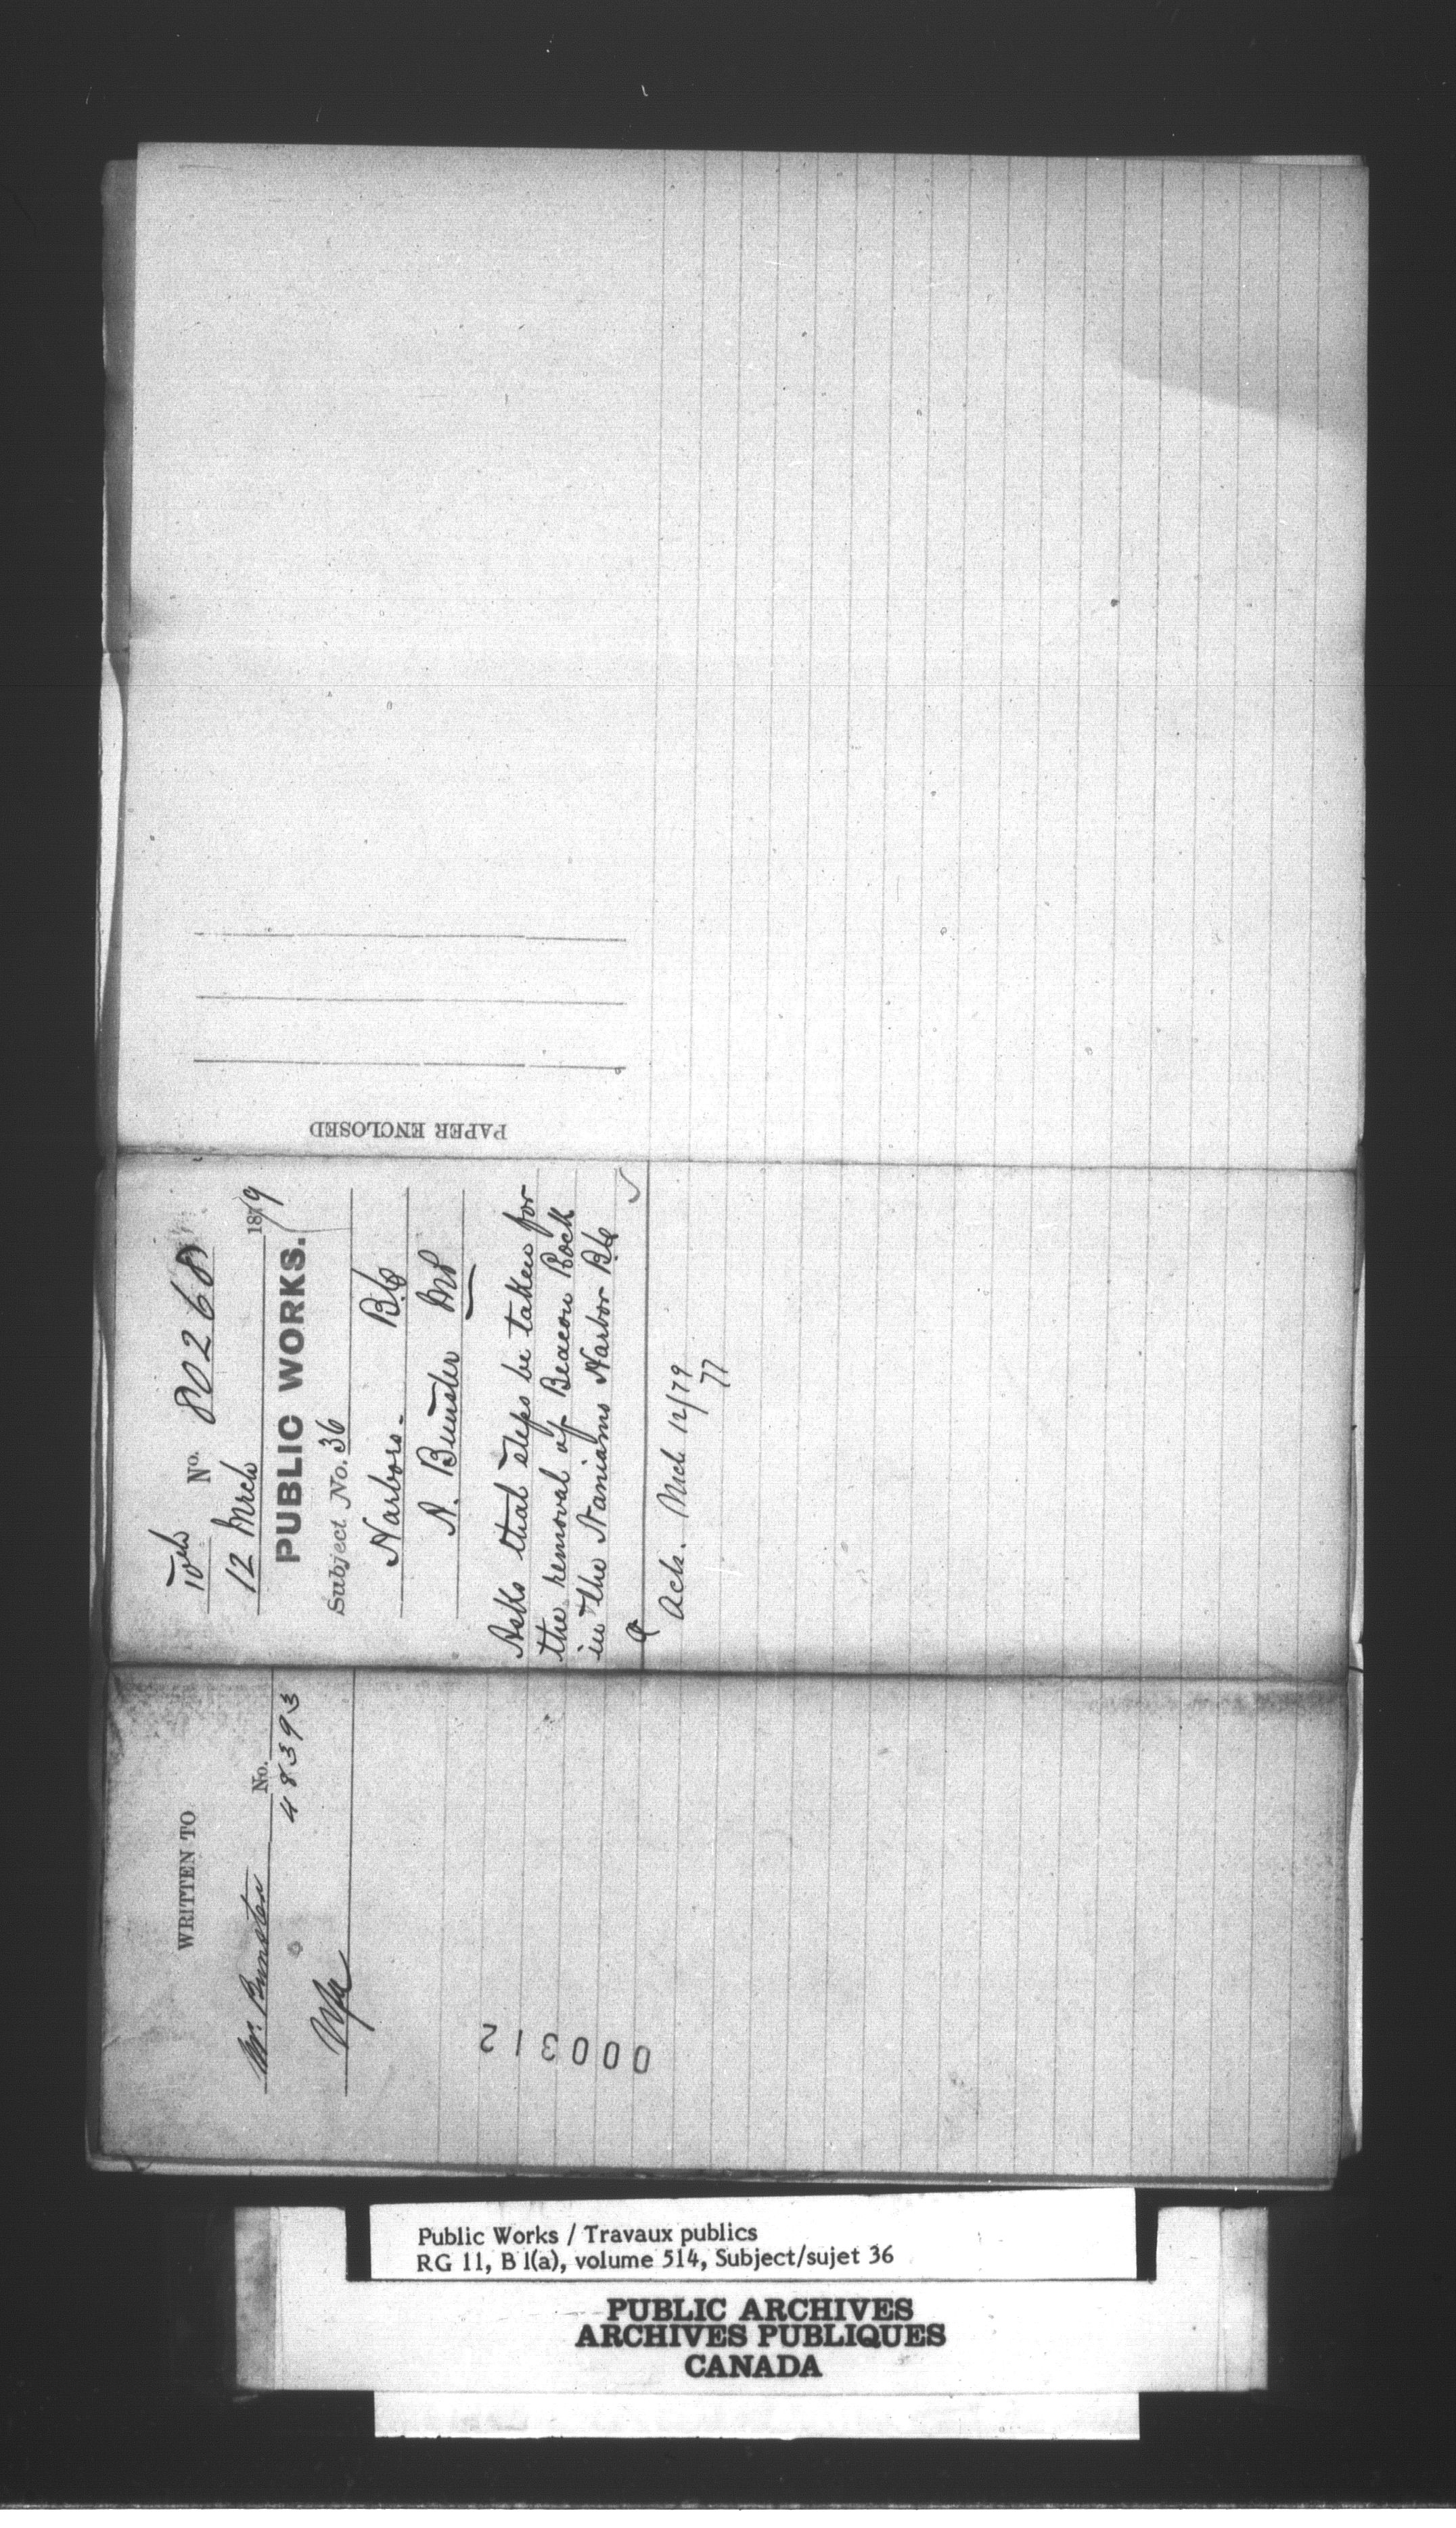 WRITTEN TO
Mr. Bunster No.
48393
10th No. 80268
12 Mrch 1879
PUBLIC WORKS.
Subject No. 36
Harbors - B.C.
A. Bunster MP
Asks that steps be taken for
the removal of Beacon Rock
in the Naniamo Harbor B.C.
Ack. Mch 12/79
77
PAPER ENCLOSED
000312
Public Works / Travaux publics
RG 11, B 1(a), volume 514, Subject/sujet 36
PUBLIC ARCHIVES
ARCHIVES PUBLIQUES
CANADA